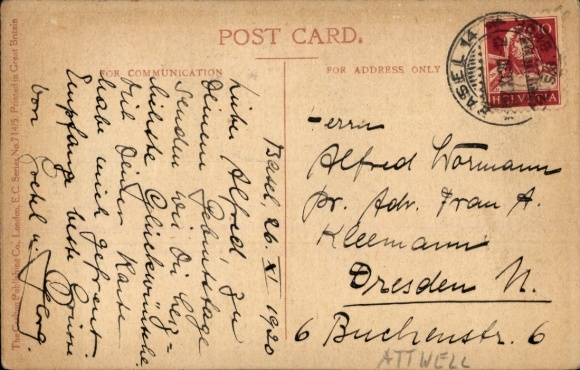 POST CARD.
FOR COMMUNICATION
FOR ADDRESS ONLY
Basel, 26 XI 1920
Lieber Alfred! Zu
Deinem Geburtstage
senden wir Dir herz-
lichste Glückwünsche.
Mit Deiner Karte
habe mich gefreut.
Empfange liebe Grüsse
von
Georg.
Herrn
Alfred Wormann
pr. Adr. Frau A.
Kleemann
Dresden N.
6 Buchenstr. 6
ATTWELL
BASEL 14
HELVETIA
The Carlton Publishing Co., London, E.C. Series No. 714/5. Printed in Great Britain